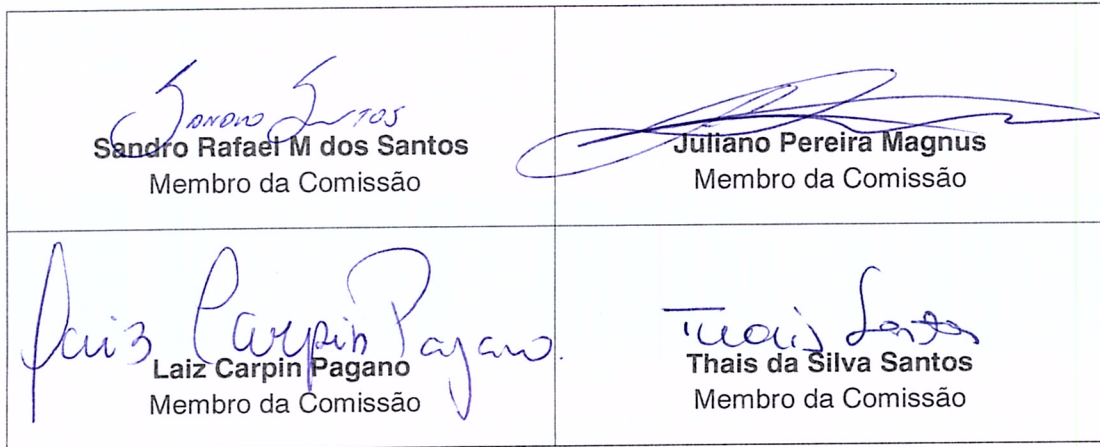 Sandro Santos
Sandro Rafael M dos Santos
Membro da Comissão
Juliano Pereira Magnus
Membro da Comissão
Laiz Carpin Pagano.
Laiz Carpin Pagano
Membro da Comissão
Thais Santos
Thais da Silva Santos
Membro da Comissão